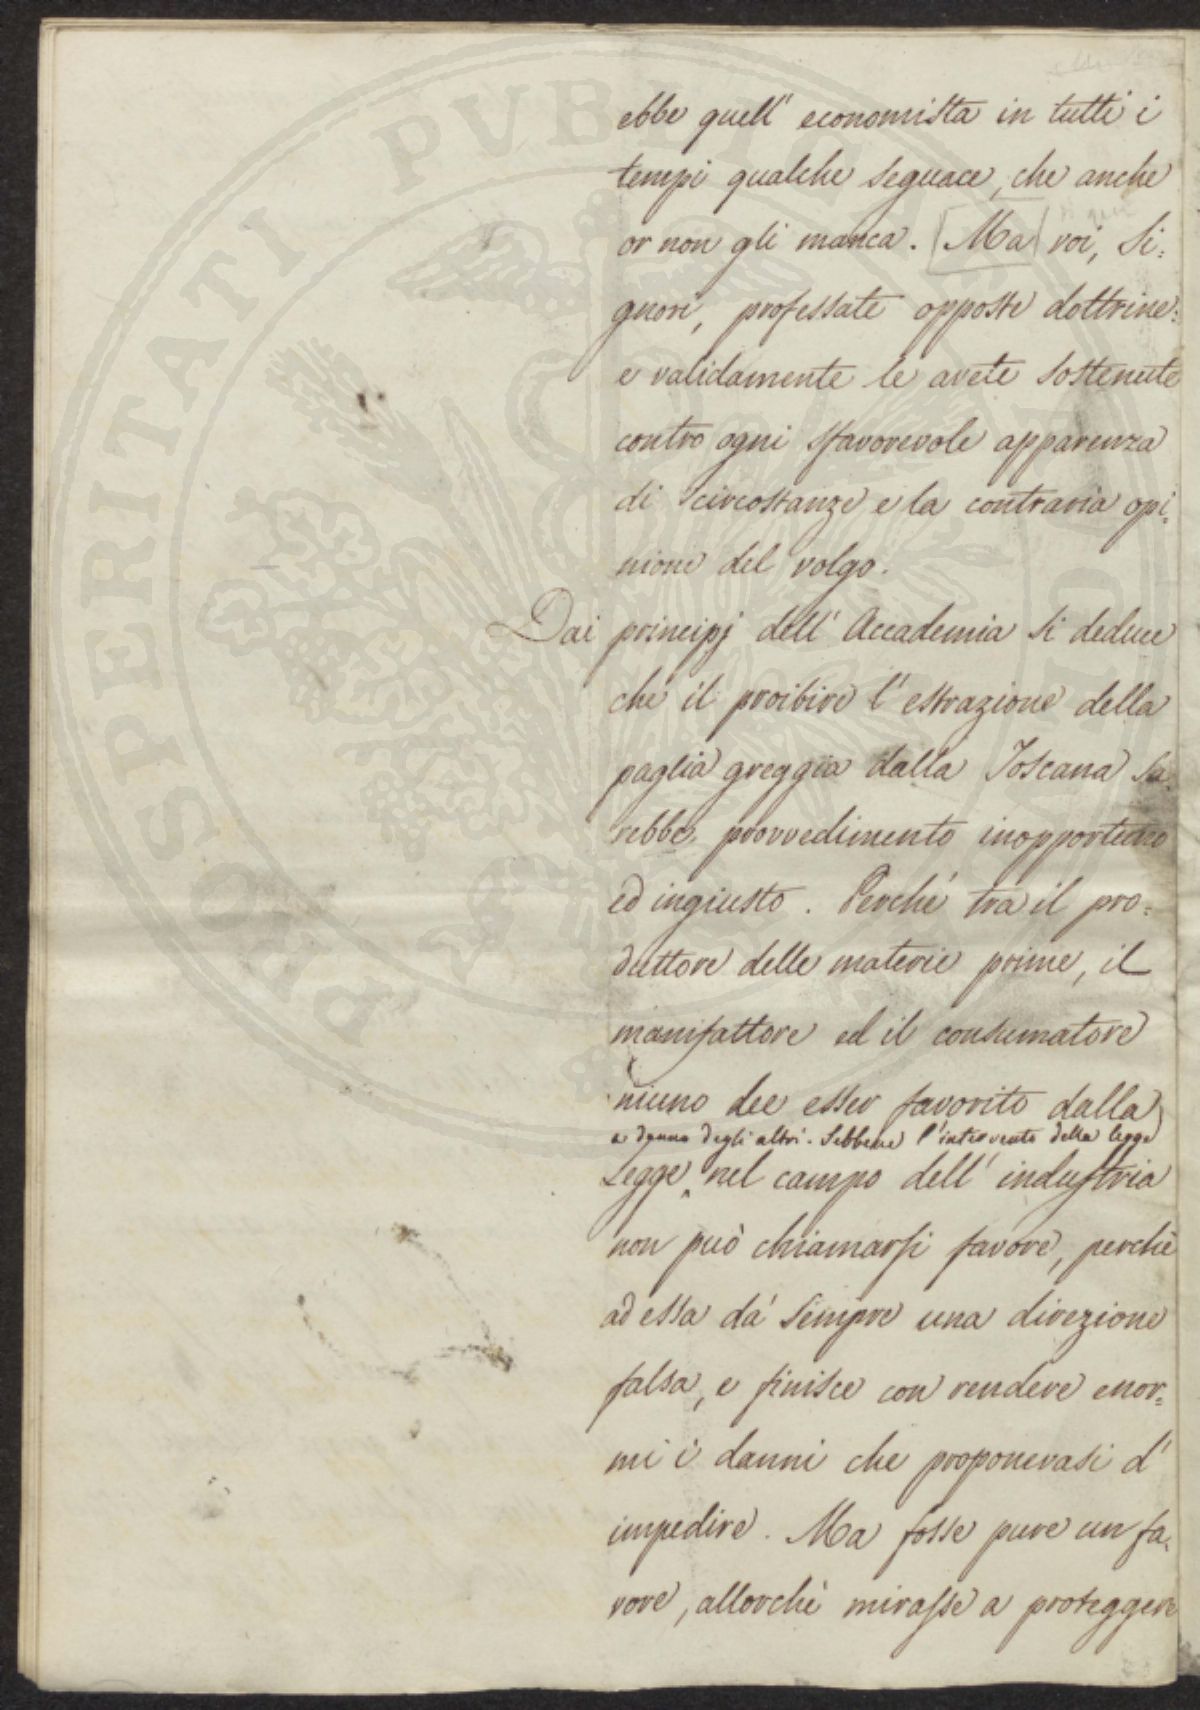 ebbe quell' economista in tutti i
tempi qualche seguace, che anche
or non gli manca. [Ma] voi, Si:
gnori, professate opposte dottrine:
e validamente le avete sostenute
contro ogni sfavorevole apparenza
di circostanze e la contraria opi:
nione del volgo.
Dai principj dell' Accademia si deduce
che il proibire l' estrazione della
paglia greggia dalla Toscana sa:
rebbe provvedimento inopportuno
ed ingiusto. Perchè tra il pro:
duttore delle materie prime, il
manifattore ed il consumatore
niuno dee esser favorito dalla
a danno degli altri. Sebbene l'intervento della legge
Legge nel campo dell' industria
non può chiamarsi favore, perchè
ad essa dà sempre una direzione
falsa, e finisce con rendere enor:
mi i danni che proponevasi d'
impedire. Ma fosse pure un fa:
vore, allorchè mirasse a proteggere
PROSPERITATI PVBLICAE